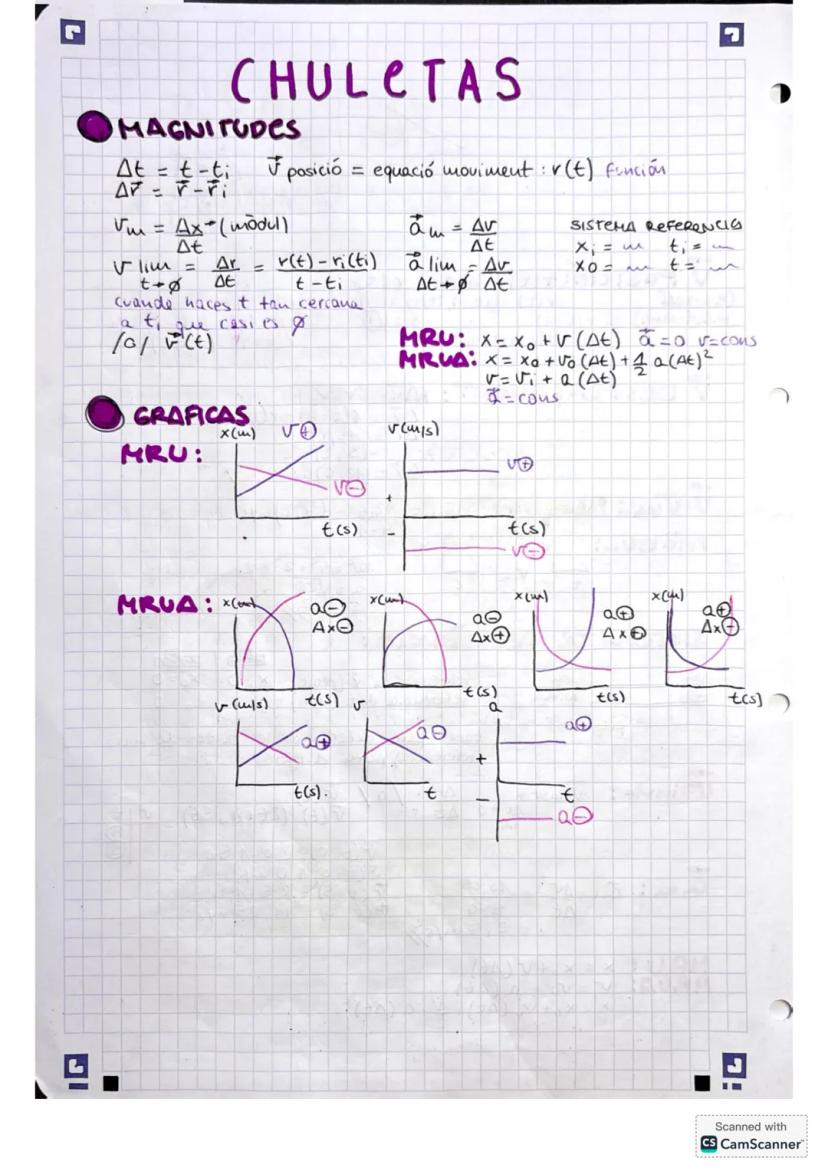 CHULETAS
MAGNITUDES
Δt = t - ti   v⃗ posició = equació moviment : r(t) función
Δr⃗ = r⃗ - r⃗i
vm = Δx→(mòdul) / Δt   a⃗m = Δv / Δt   SISTEMA REFERENCIA
xi = m   ti =
x0 = m   t =
v lim t→0 = Δr / Δt = r(t) - ri(ti) / t - ti   a⃗ lim Δt→0 = Δv / Δt
cuando haces t tan cercana
a ti que casi es 0
/o/ v⃗(t)
MRU: x = x0 + v (Δt)   a⃗ = 0   v = cons
MRUA: x = x0 + v0 (Δt) + 1/2 a(Δt)²
v = vi + a (Δt)
a⃗ = cons
GRAFICAS
MRU: x(m) v⊕ v⊖ t(s)   v(m/s) + - v⊕ t(s) v⊖
MRUA: x(m) a⊖ Δx⊖ t(s)   x(m) a⊖ Δx⊕ t(s)   x(m) a⊕ Δx⊕ t(s)   x(m) a⊕ Δx⊖ t(s)
v(m/s) a⊕ t(s).   v a⊖ t   a + - a⊕ t a⊖
Scanned with
CS CamScanner